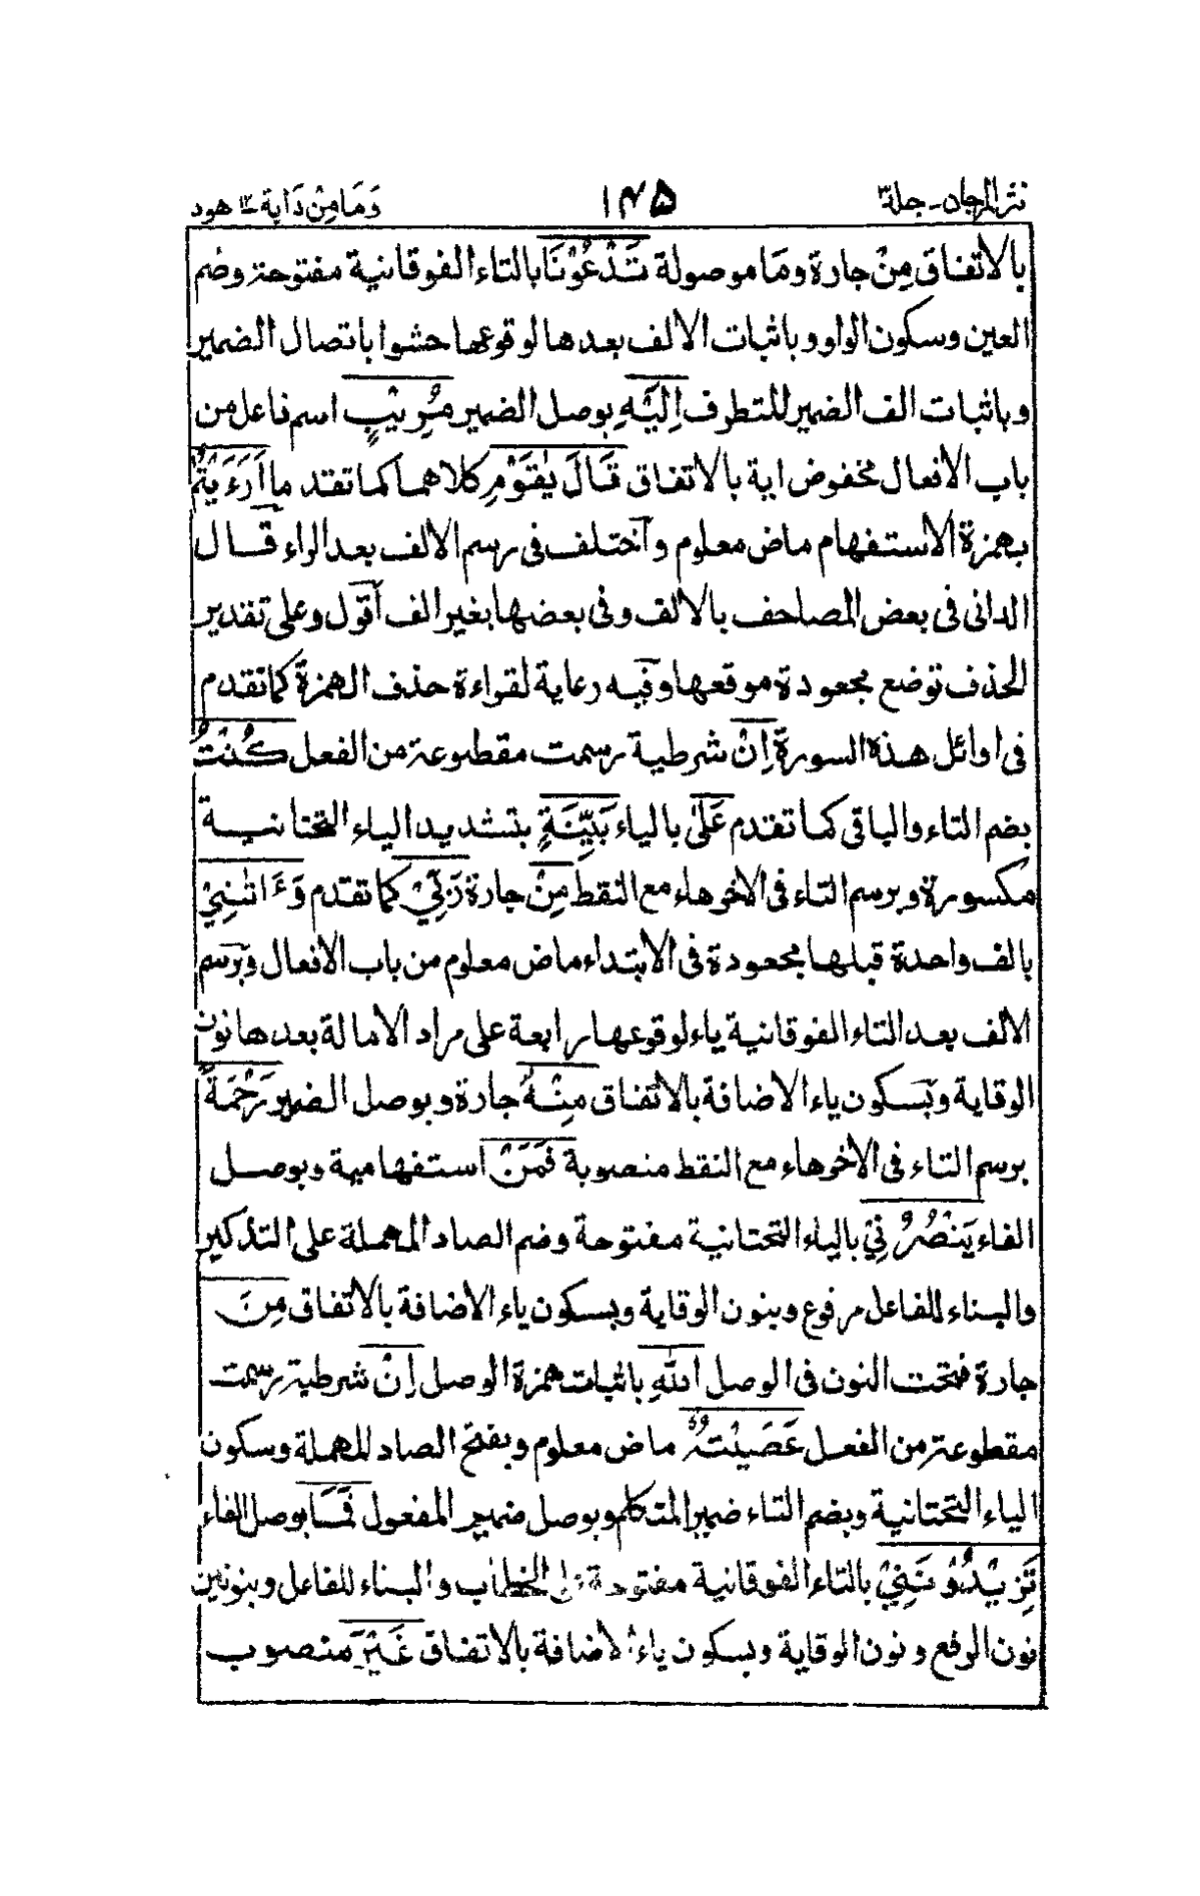 نثر المرجان - جلد ٣
١٤٥
وَمَا مِنْ دَابة ١٢ هود
بالاتفاق مِنْ جارة ومَا موصولة تَدْعُوْنَا بالتاء الفوقانية مفتوحة وضم
العين وسكون الواو وباثبات الالف بعدها لوقوعها حشوا باتصال الضمير
وباثبات الف الضمير للتطرف اِلَيْهِ بوصل الضمير مُرِيْبٍ اسم فاعل من
باب الافعال مخفوض اية بالاتفاق قَالَ يٰقَوْمِ كلاهما كما تقدما اَرَءَيْتُمْ
بهمزة الاستفهام ماض معلوم وآختلف فى رسم الالف بعد الراء قَــال
الدانى فى بعض المصاحف بالالف وفى بعضها بغير الف آقول وعلى تقدير
الحذف توضع مجعودة موقعها وفيه رعاية لقراءة حذف الهمزة كما تقدم
فى اوائل هذه السورة اِنْ شرطية رسمت مقطوعة من الفعل كُنْتُ
بضم التاء والباقى كما تقدم عَلٰى بالياء بَيِّنَةٍ بتشديد الياء التحتانية
مكسورة وبرسم التاء فى الاخر هاء مع النقط مِنْ جارة رَبِّيْ كما تقدم وَءَاتٰىنِيْ
بالف واحدة قبلها مجعودة فى الابتداء ماض معلوم من باب الافعال وبرسم
الالف بعد التاء الفوقانية ياء لوقوعها رابعة على مراد الامالة بعدها نون
الوقاية وبسكون ياء الاضافة بالاتفاق مِنْهُ جارة وبوصل الضمير رَحْمَةً
برسم التاء فى الاخر هاء مع النقط منصوبة فَمَنْ استفهامية وبوصــل
الفاء يَنْصُرُنِيْ بالياء التحتانية مفتوحة وضم الصاد المهملة على التذكير
والبناء للفاعل مرفوع وبنون الوقاية وبسكون ياء الاضافة بالاتفاق مِنَ
جارة فتحت النون فى الوصل اللهِ باثبات همزة الوصل اِنْ شرطية رسمت
مقطوعة من الفعــل عَصَيْتُهٗ ماض معلوم وبفتح الصاد المهملة وسكون
الياء التحتانية وبضم التاء ضمير المتكلم وبوصل ضمير المفعول فَمَا بوصل الفاء
تَزِيْدُوْنَنِيْ بالتاء الفوقانية مفتوحة على الخطاب والبناء للفاعل وبنونين
نون الرفع ونون الوقاية وبسكون ياء الاضافة بالاتفاق غَيْرَ منصوب